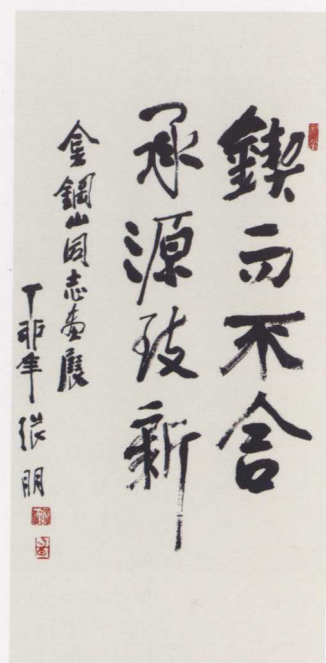 鍥而不舍
承源致新
金鋼山同志畫展
丁卯年 張朋